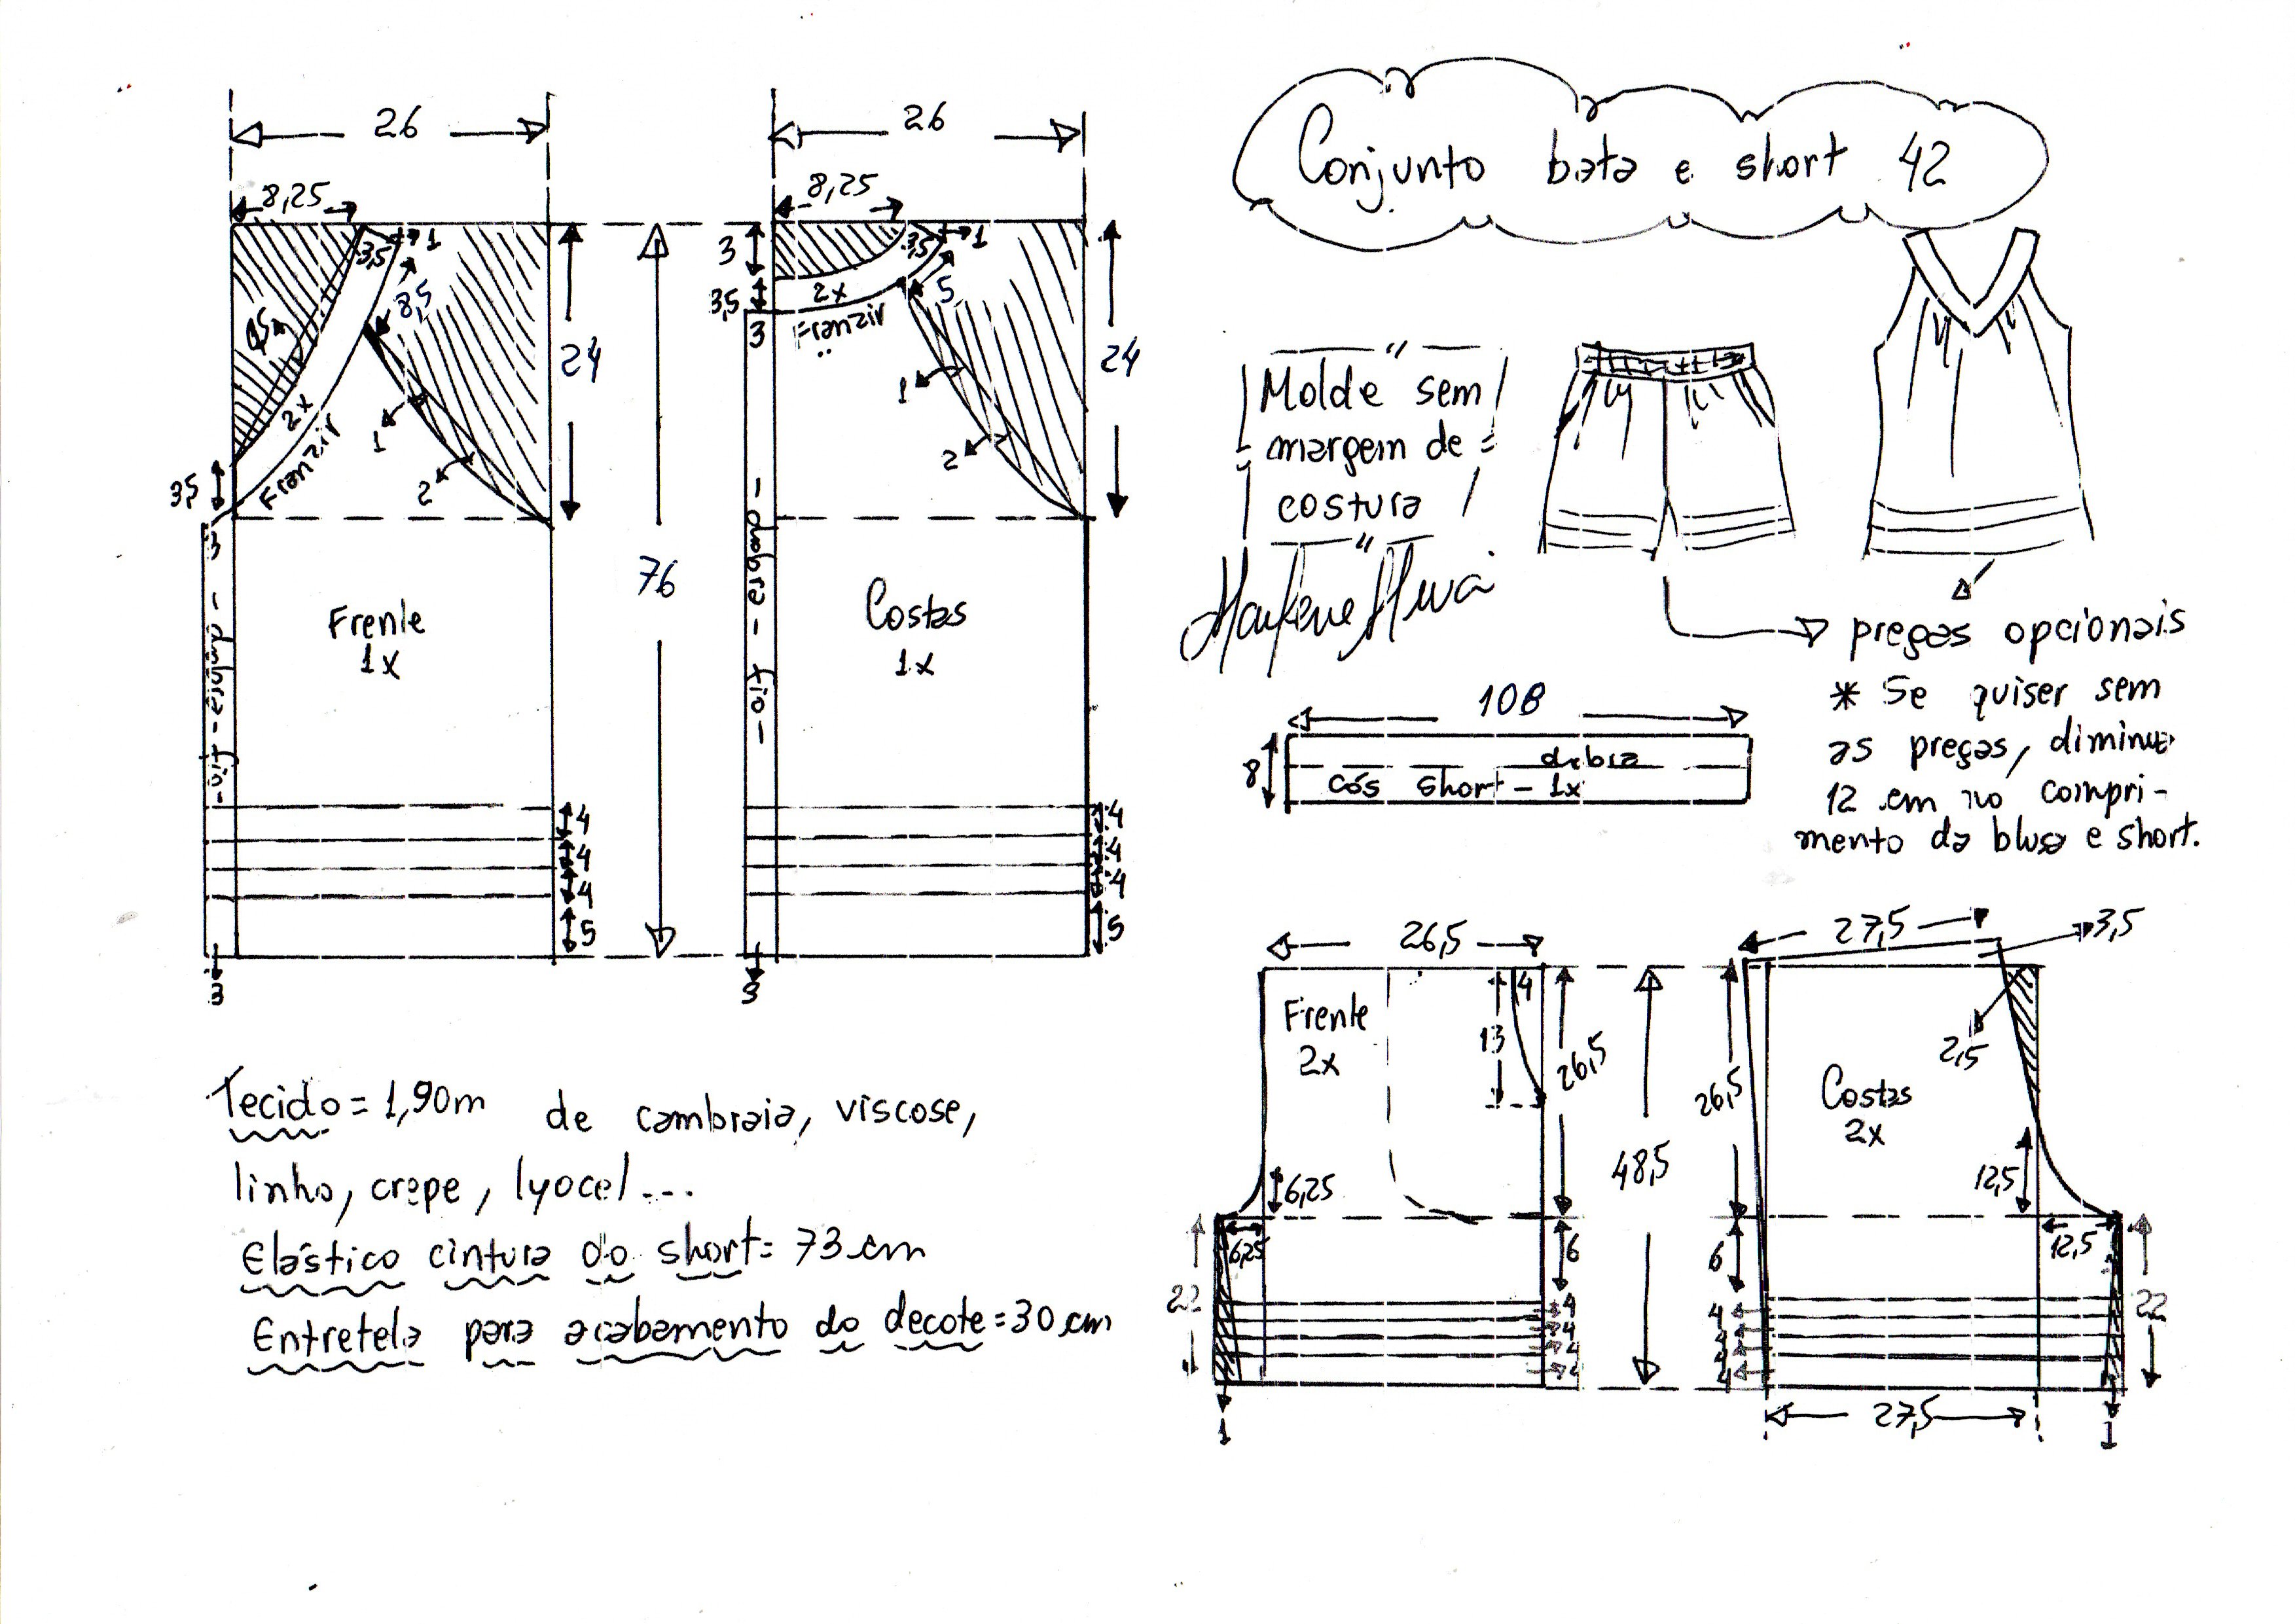 Conjunto bata e short 42
26
8,25
3,5
1
8,5
1,5
2x
Franzir
1
2
3,5
3
24
dobra - fio -
Frente
1x
4
4
4
5
3
76
26
8,25
3
3,5
1
5
3,5
2x
3
Franzir
1
2
24
- dobra - fio -
Costas
1x
4
4
4
5
3
"
Molde sem
margem de
costura
"
pregas opcionais
* Se quiser sem
as pregas, diminue
12 cm no compri-
mento da blusa e short.
108
8
dobra
cós short - 1x
Tecido = 1,90m de cambraia, viscose,
linho, crepe, lyocel...
Elástico cintura do short = 73 cm
Entretela para acabamento do decote = 30 cm
26,5
Frente
2x
4
13
26,5
6,25
6,25
22
6
4
4
4
4
1
48,5
27,5
3,5
2,5
Costas
2x
26,5
12,5
12,5
6
4
4
4
4
22
27,5
1